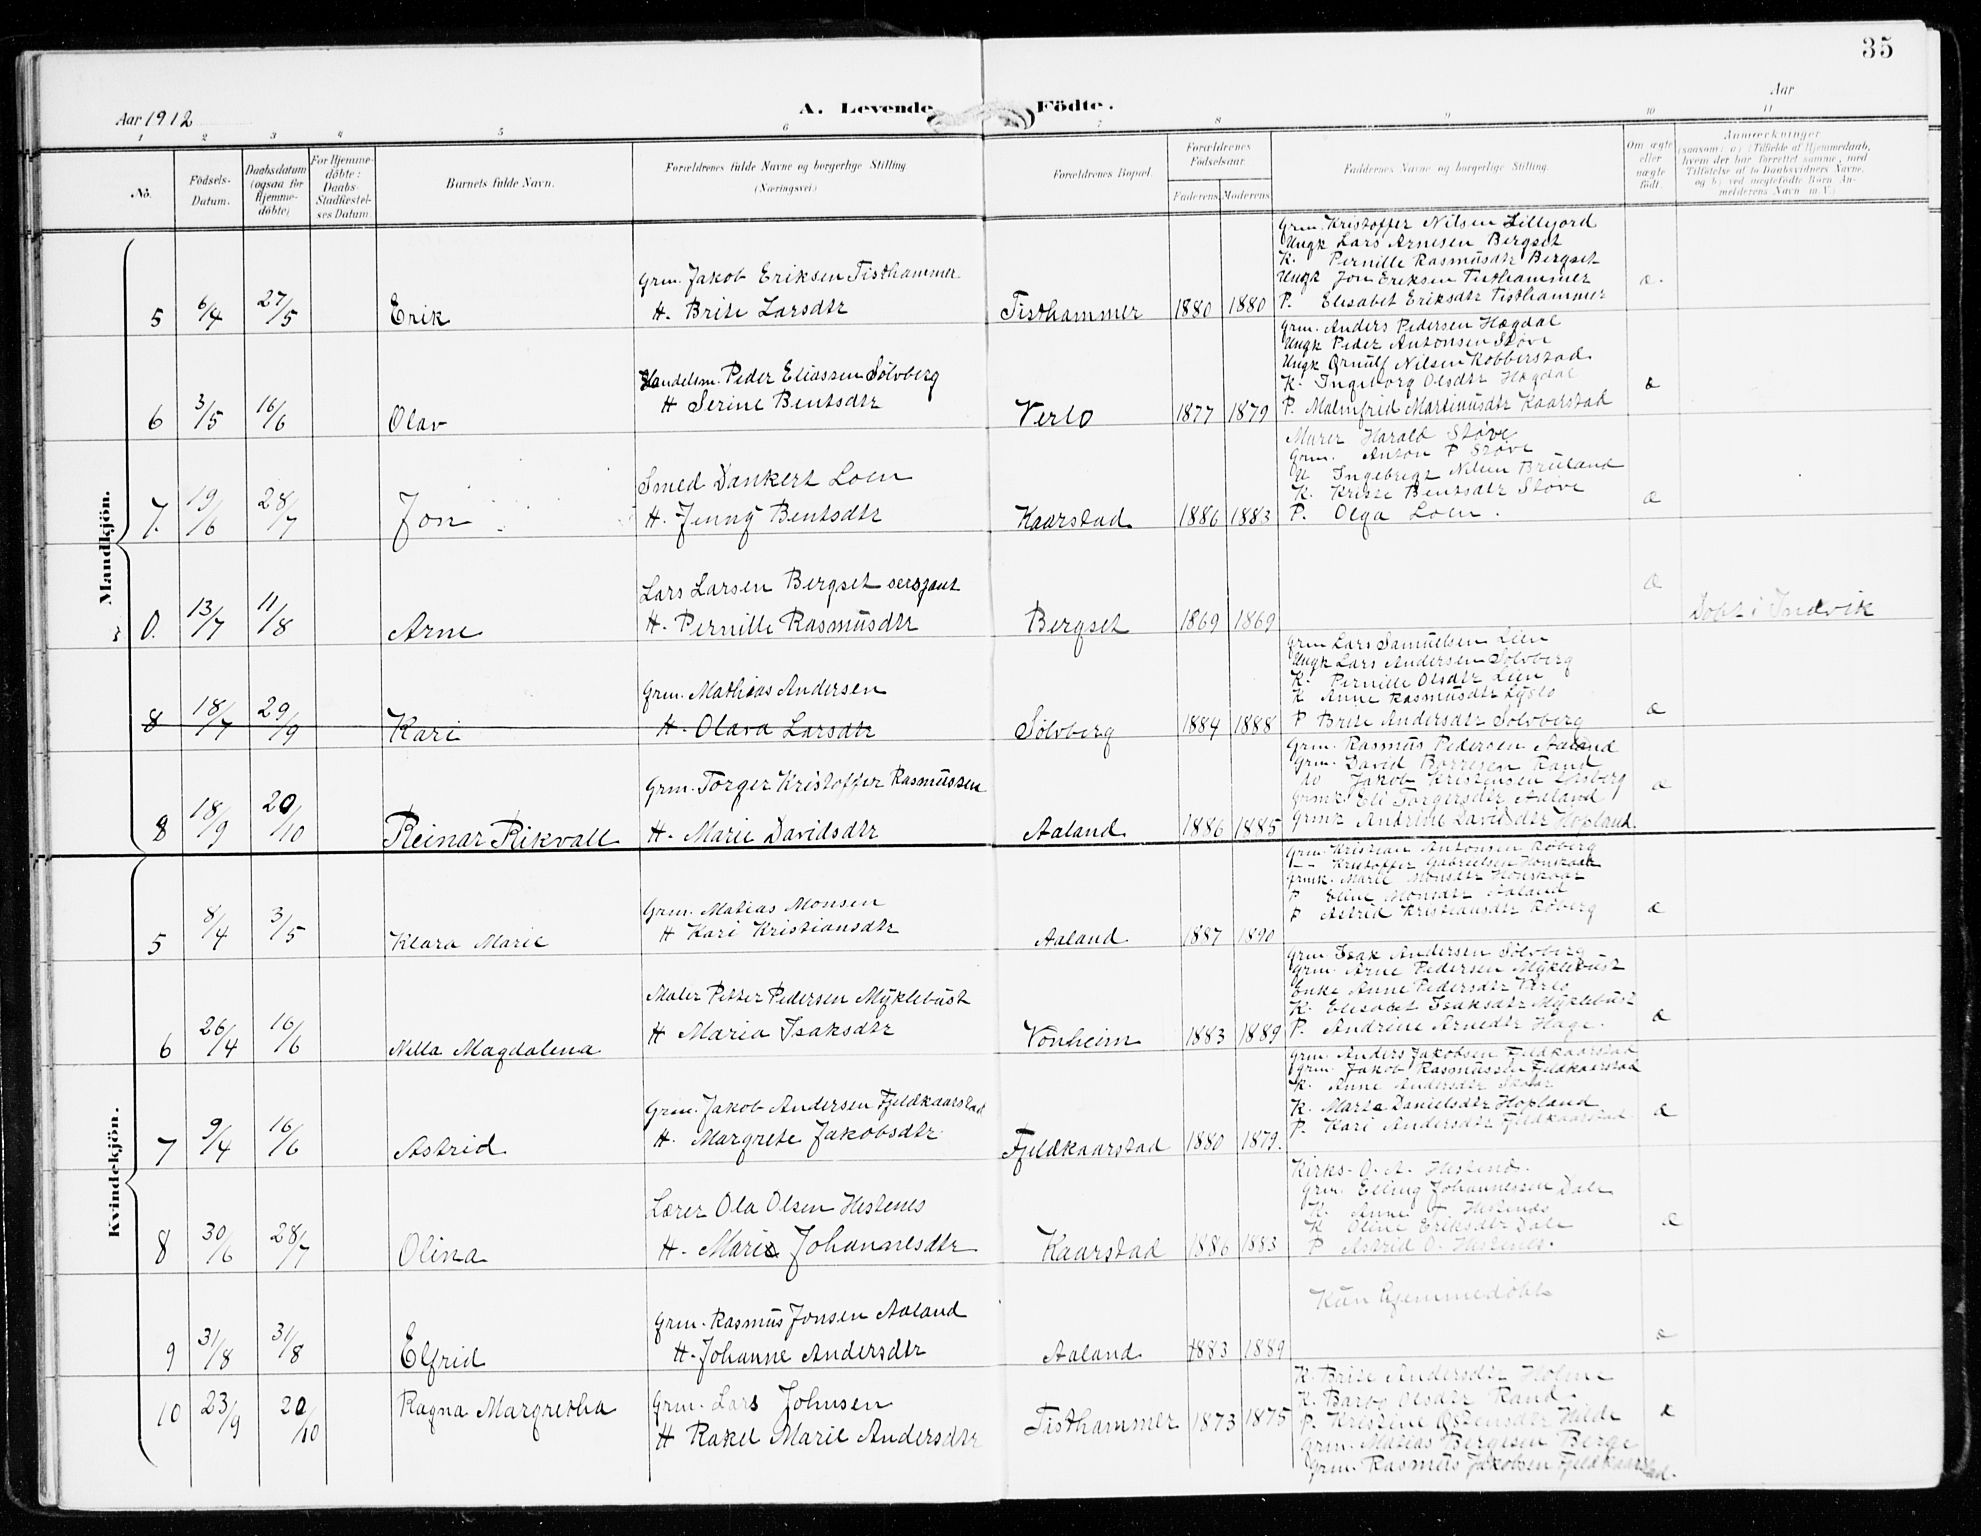 35
Aar 1912
A. Levende Födte.
Aar
1 2 3 4 5 6 7 8 9 10 11
No. Födsels-Datum. Daabsdatum (ogsaa for hjemme-döbte) For Hjemme-döbte: Daabs-Stadfæstel-ses Datum. Barnets fulde Navn. Forældrenes fulde Navne og borgerlige Stilling (Næringsvei.) Forældrenes Bopæl. Forældrenes Fødselsaar. Faderens Moderens Faddernes Navne og borgerlige Stilling. Om ægte eller uægte födt. Anmærkninger (saasom: a) (Tilfælde af Hjemmedaab, hvem der har forrettet samme, med Tilföielse af to Daabsvidners Navne, og b) ved uægtefödte Börn An-melderens Navn m. V.)
Mandkjön.
Grm. Kristoffer Nilsen Lillejord
Ungk Lars Arnesen Bergset
K. Pernille Rasmusdtr Bergset
Grm. Jakob Eriksen Tisthammer
Ungk Jon Eriksen Tisthammer
5 6/4 27/5 Erik H. Brite Larsdtr Tisthammer 1880 1880 P. Elisabet Eriksdtr Tisthammer æ
Grm. Anders Pedersen Hægdal
Ungk Peder Antonsen Støve
Ungk Ørnulf Nilsen Kobberstad
Handelsm. Peder Eliassen Sölvberg
K. Ingeborg Olsdtr Hægdal
6 3/5 16/6 Olav H Serine Bentsdtr Verlo 1877 1879 P. Malmfrid Martinusdtr Kaarstad æ
Murer Harald Støve
Grm. Anton P Støve
Smed Dankert Loen
U Ingebrigt Nilsen Bruland
K. Kriste Bentsdtr Støve
7. 19/6 28/7 Jon H. Jenny Bentsdtr Kaarstad 1886 1883 P. Olga Loen. æ
Lars Larsen Bergset sersjant
0. 13/7 11/8 Arne H. Pernille Rasmusdtr Bergset 1869 1869 æ Døpt i Indvik
Grm Lars Samuelsen Lien
Ungk Lars Andersen Sölvberg
Grm. Mathias Andersen
K. Pernille Olsdtr Lien
K Anne Rasmusdtr
8 18/7 29/9 Kari H. Olava Larsdtr Sölvberg 1884 1888 P Brite Andersdtr Sölvberg æ
Grm. Rasmus Pedersen Aaland
Grm. David Rand
Grm. Torger Kristoffer Rasmussen
do Jakob Kristensen
Grmk Eli Torgersdtr Aaland
8 18/9 20/10 Reinar Rikvall H. Marie Davidsdtr Aaland 1886 1885 Grmk Andrine Davidsdtr Hopland æ
Kvindekjön.
Grm. Kristian Antonsen Røberg
Kristoffer Gabrielsen
Grmk. Marie Monsdtr
Grm. Matias Monsen
P Eline Monsdtr Aaland
5 8/4 3/5 Klara Marie H Kari Kristiansdtr Aaland 1887 1890 P Astrid Kristiansdtr Røberg æ
Grm Isak Andersen Sölvberg
Grm. Arne Pedersen Myklebust
Maler Petter Pedersen Myklebust
Enke Anne Pedersdtr Verlo
K. Elisabet Isaksdtr Myklebust
6 26/4 16/6 Nella Magdalena H Maria Isaksdtr Vonheim 1883 1889 P. Andrine Arnedtr Hage. æ
Grm. Anders Jakobsen Fjeldkaarstad
Grm. Jakob Rasmussen Fjeldkaarstad
Grm. Jakob Andersen Fjeldkaarstad
K. Anne Andersdtr
K. Marte Danielsdtr Hopland
7 9/4 16/6 Astrid H. Margrete Jakobsdtr Fjeldkaarstad 1880 1879. P. Kari Andersdtr Fjeldkaarstad æ
Kirks. O. A. Hestenes.
Lærer Ola Olsen Hestenes
Grm. Elling Johannessen Dale
K. Anne J. Hestenes
K Oline Eriksdtr Dale
8 30/6 28/7 Olina H. Marie Johannesdtr Kaarstad 1886 1883 P Astrid O. Hestenes. æ
Kun hjemmedöbt
Grm. Rasmus Jonsen Aaland
9 31/8 31/8 Elfrid H. Johanne Andersdtr Aaland 1883 1889 æ
K. Brite Andersdtr Holme
K. Barbo Olsdtr Rand
10 23/9 20/10 Ragna Margretha Grm. Lars Johnsen Tisthammer 1873 1875 P. Kristine Hilde æ
H Rakel Marie Andersdtr
Grm. Matias Bergesen Berge
Grm. Rasmus Jakobsen Fjeldkaarstad.